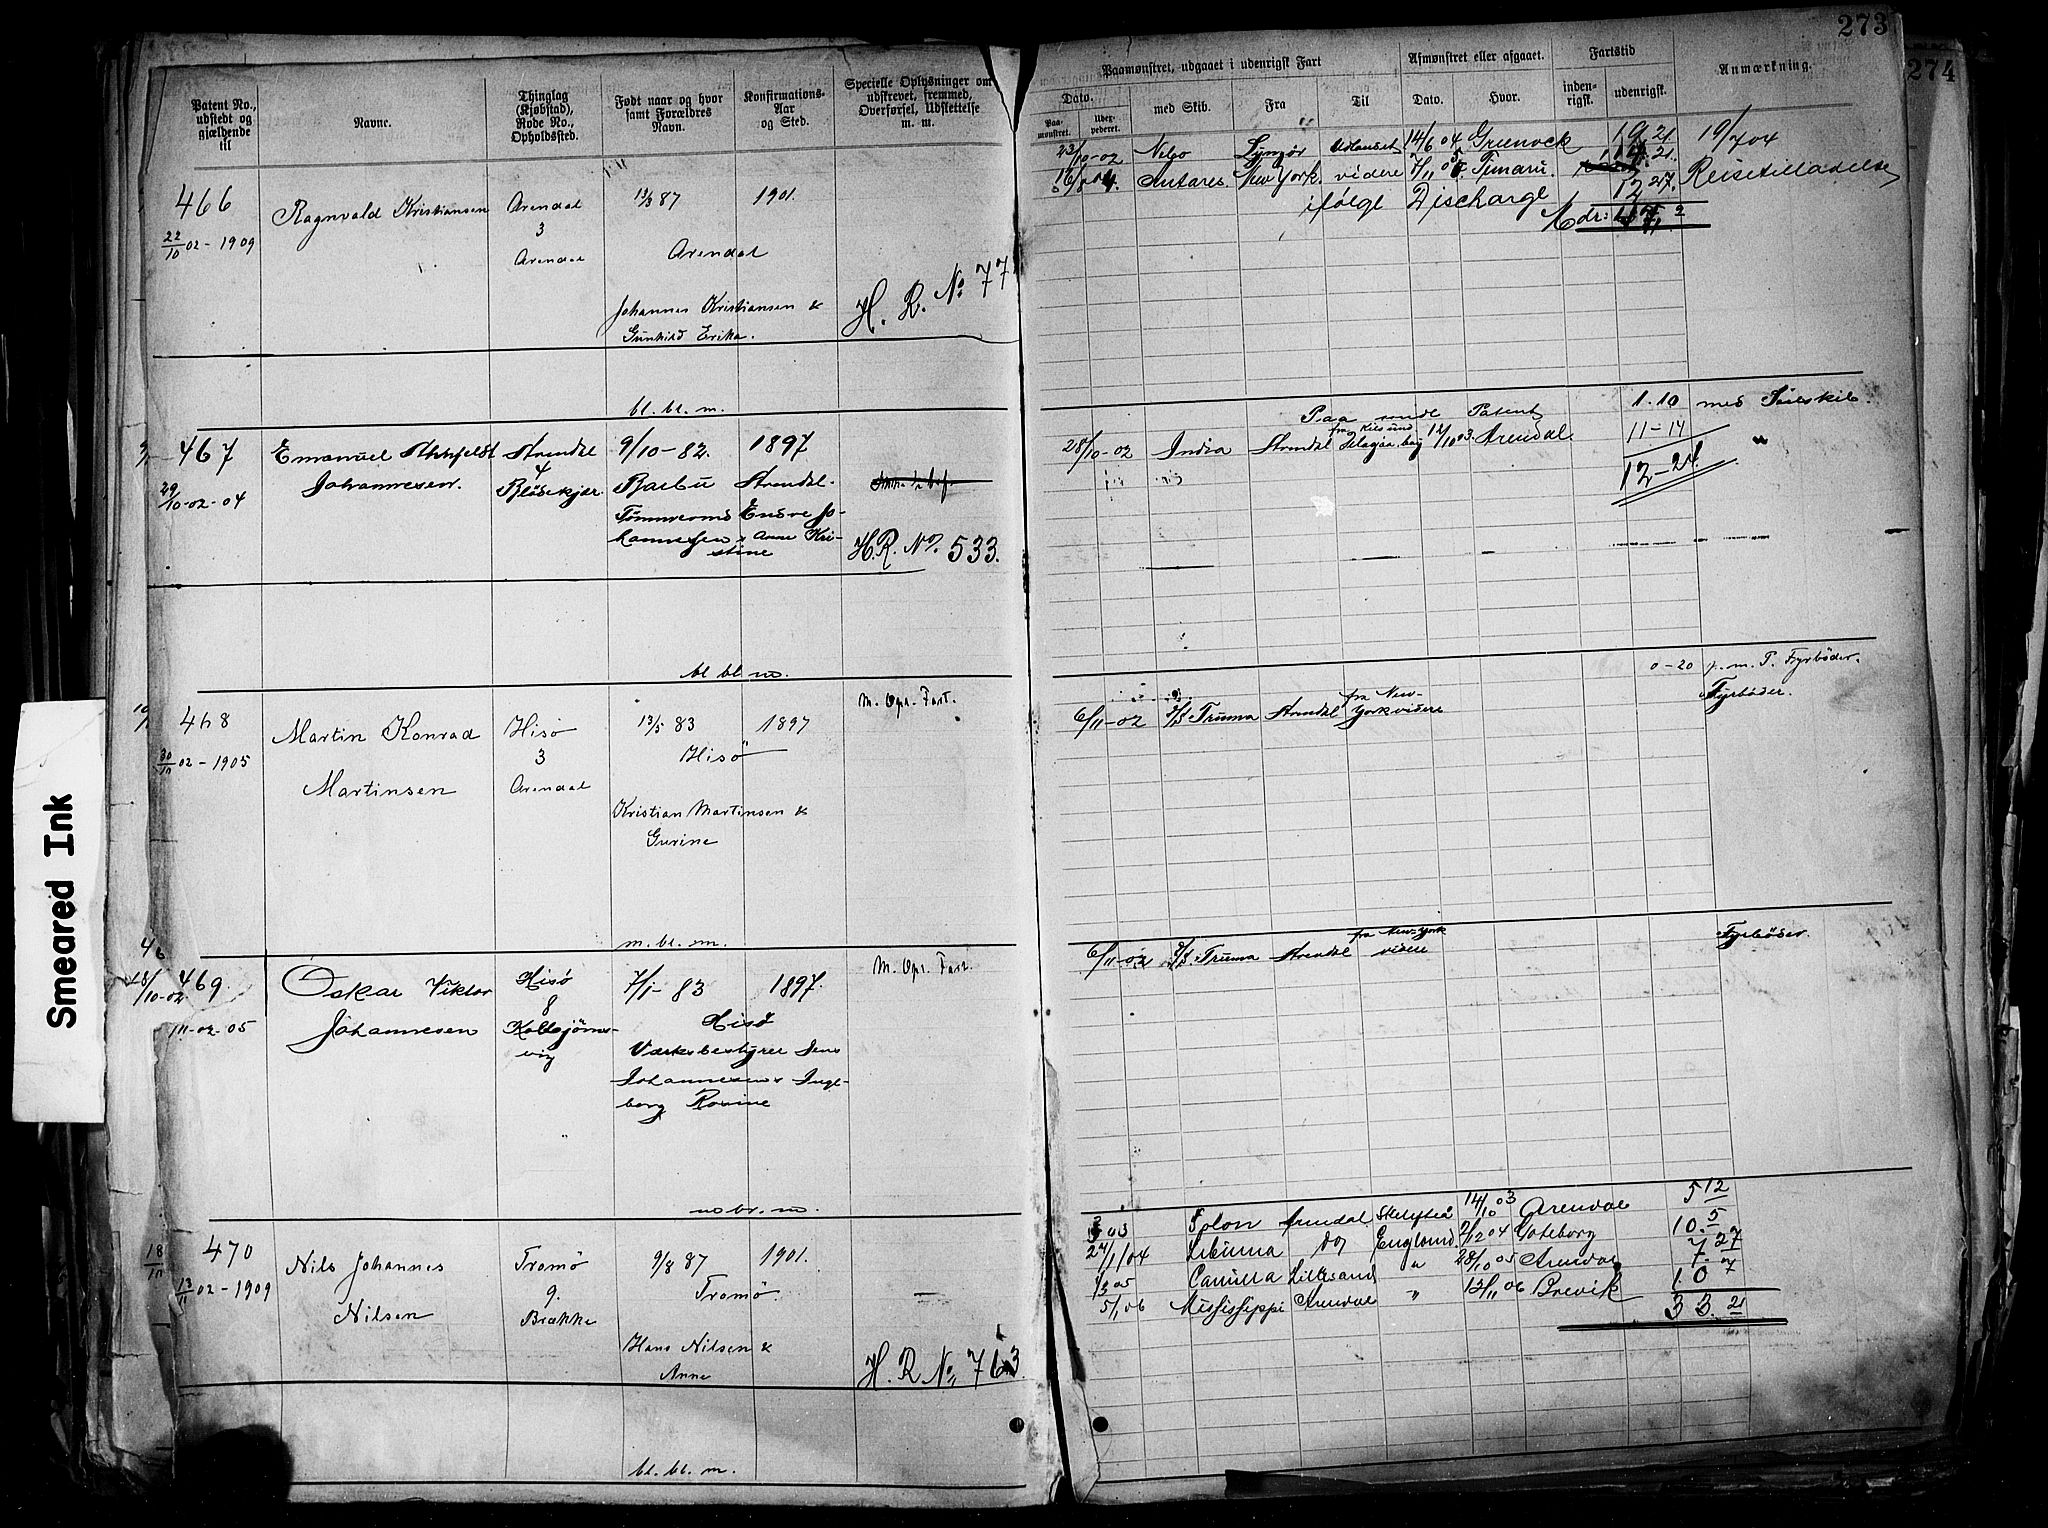 273
274
Patent No., udstedt og gjældende til
Navne.
Thinglag (Kjøbstad), Rode No., Opholdssted.
Født naar og hvor samt Forældres Navn.
Konfirmations-Aar og Sted.
Specielle Oplysninger om udskrevet, fremmed, Overførsel, Udslettelse m. m.
Paamønstret, udgaaet i udenrigsk Fart
Afmønstret eller afgaaet.
Fartstid
Anmærkning.
Dato.
med Skib.
Fra
Til
Dato.
Hvor.
inden-rigsk.
udenrigsk.
Paa-mønstret.
Udex-pederet.
466
22/10 02 - 1909
Ragnvald Kristiansen
Arendal
3
Arendal
13/3 87
1901.
Arendal
Johannes Kristiansen &
Gunhild Erika.
H. R. No. 77
23/10-02 Lyngör Udlandet 14/6 04 Greenock 19 21 19/7 04
Antares New York. videre 7/11 05 Timaru. Reisetilladelse
ifølge Discharge 12 27.
Mdr:
bl. bl. m.
467
29/10-02-04
Emanuel
Johannesen.
Arendal
4
Blødekjær
9/10-82.
1897
Barbu Arendal.
Tømmermd Endre Jo-
hannesen & Anne Kri-
stine
H.R. No. 533.
Paa Patent 1.10 med Seilskib
28/10-02 India Arendal Delagoa bay 12/10 03. Arendal. 11-14 "
12-24
bl bl. m.
468
30/10 02 - 1905
Martin Konrad
Martinsen
Hisö
3
Arendal
13/5 83
1897
Hisö
Kristian Martinsen &
Gurine
M. Opr. Fart.
0-20 m. P. Fyrbøder.
6/11-02 D/S Truma Arendal fra New-York videre Fyrbøder.
m. bl. m.
4/6
469
18/10-02
11-02-05
Oskar Viktor
Johannesen
Hisö
8
Kolbjørns-
vig
7/1-83
1897.
Hisö
Værksbestyrer Jens
Johannesen & Inge-
borg Rosine
M. Opr. Fart.
6/11-02 D/S Truma Arendal fra New-York videre Fyrbøder.
m br. m.
18/11
470
13/11 02 - 1909
Nils Johannes
Nilsen
Tromö
9.
Brække
9/8 87
1901.
Tromö
Hans Nilsen &
Anne
H. R. No. 763
03 Solon Arendal Skelefteå 14/10 03 Arendal 5 12
27/1/04 do England 2/12 04 Göteborg 10. 5
05 Camilla Lillesand " 28/10 05 Arendal 7. 27
5/1 06 Mississippi Arendal " 12/11 06 Brevik 10 7
33. 21
bl. bl. m.
Smeared Ink